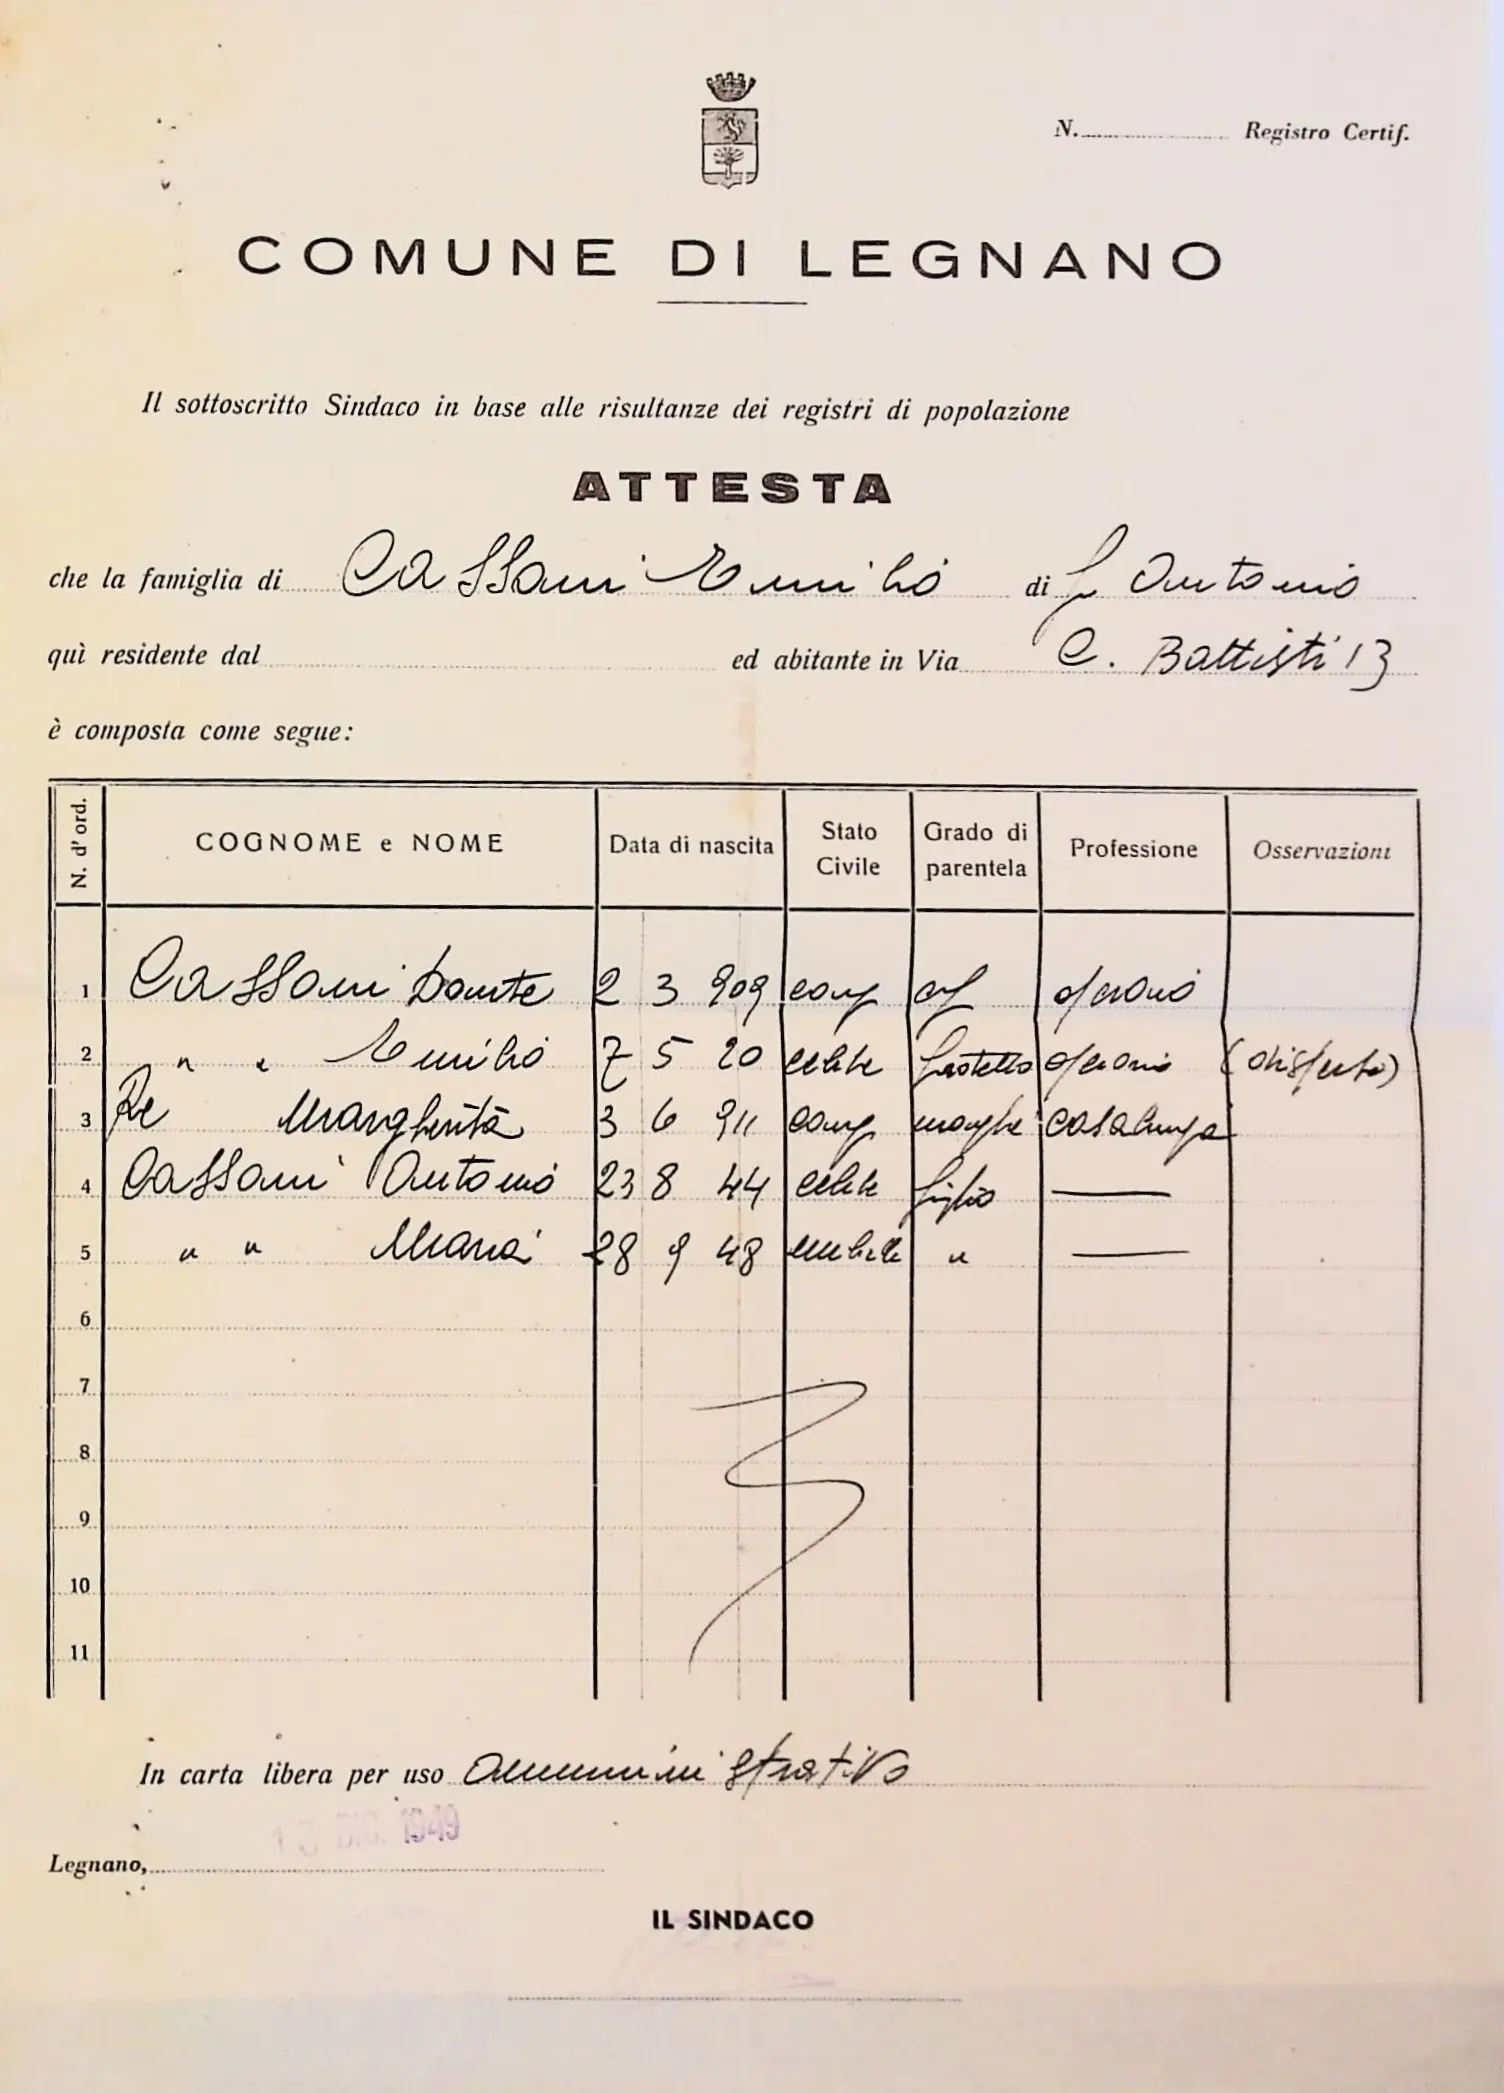 N. Registro Certif.
COMUNE DI LEGNANO
Il sottoscritto Sindaco in base alle risultanze dei registri di popolazione
ATTESTA
che la famiglia di Cassani Emilio di f Antonio
quì residente dal ed abitante in Via C. Battisti 13
è composta come segue:
N. d' ord. COGNOME e NOME Data di nascita Stato Civile Grado di parentela Professione Osservazioni
1 Cassani Dante 2 3 909 cong cf operaio
2 " " Emilio 7 5 20 celibe fratello operaio (disperso)
3 Re Margherita 3 6 911 cong moglie casalinga
4 Cassani Antonio 23 8 44 celibe figlio —
5 " " Maria 28 9 48 nubile " —
6
7
8
9
10
11
In carta libera per uso amministrativo
DIC. 1949
Legnano,
IL SINDACO